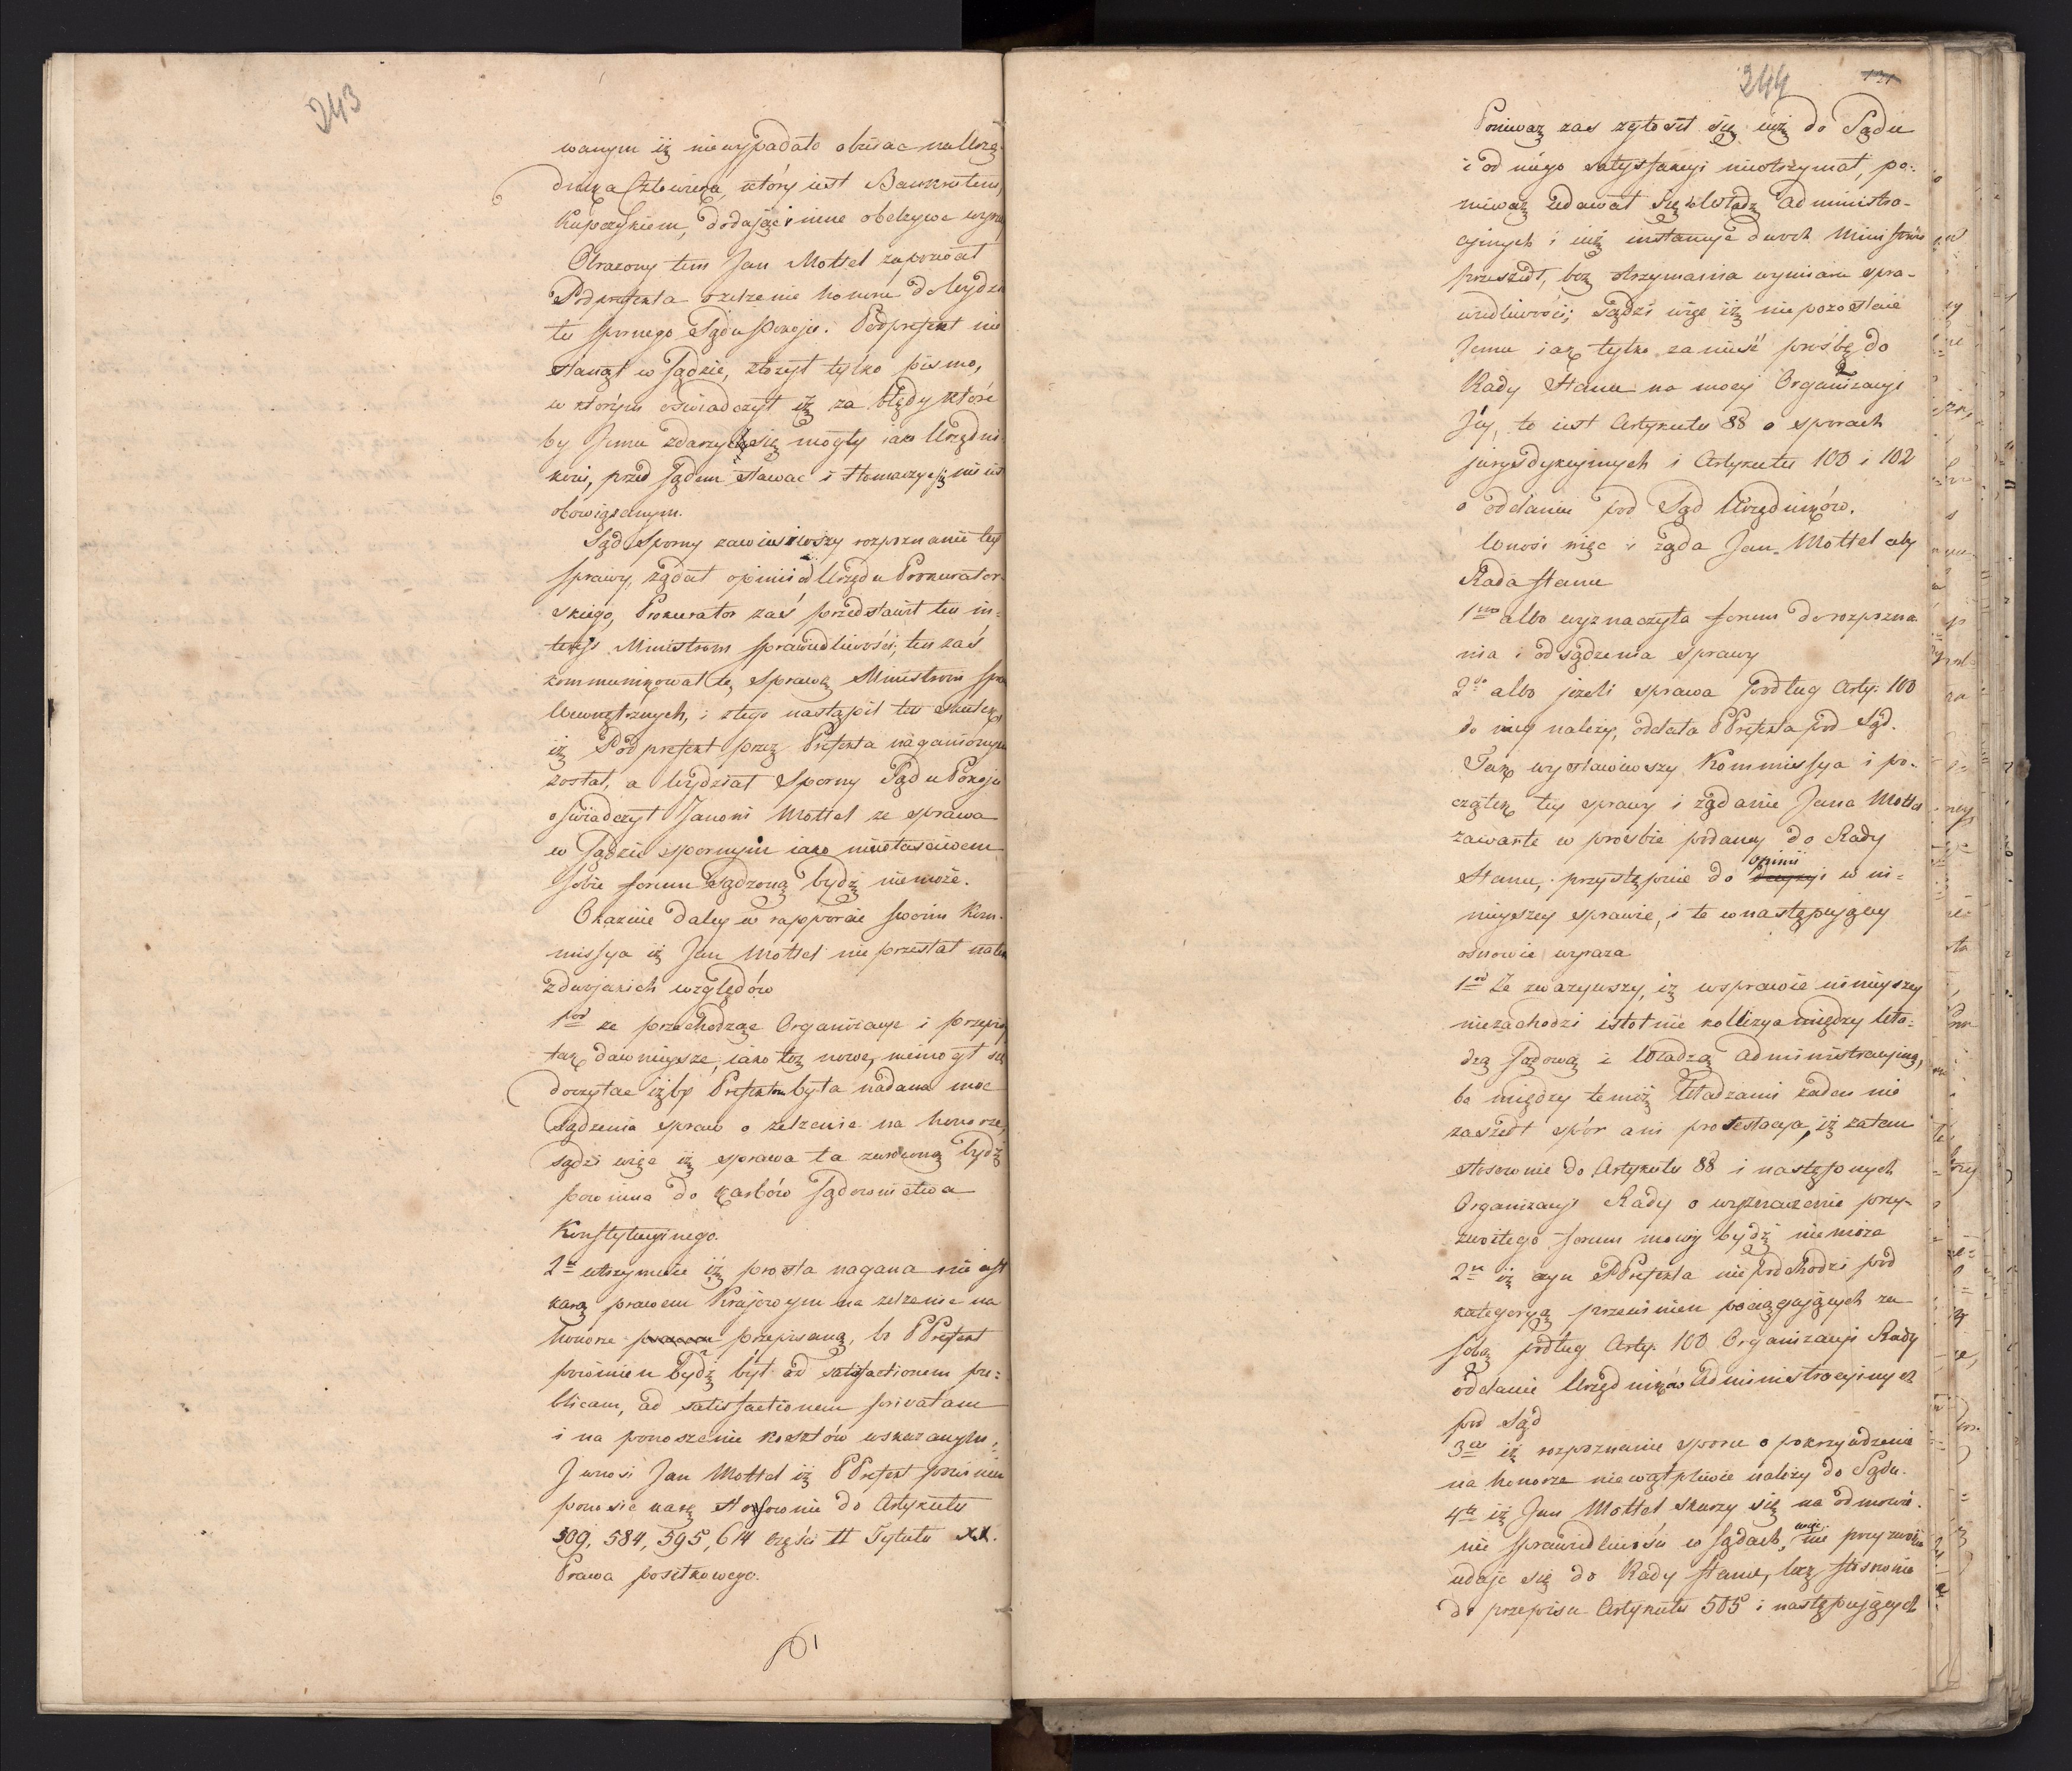 243
wanym iż niewypadało obierac na Urzę-
dnika Człowieka, który iest Bankrutem,
Kupczykiem, dodając i inne obelżywe wyra
Obrażony tem Jan Mottel zapozwał
Podprefekta o zelżenie honoru do Wydzia
łu spornego Sądu Pokoju. Podprefekt nie
stanął w Sądzie, złożył tylko pismo,
w którym oświadczył iż za błędy które
by Jemu zdarzyć się mogły iako Urzędni-
kowi, przed Sądem stawać i tłomaczyć się nie iest
obowiązanym.
Sąd Sporny zawiesiwszy rozpoznanie tey
sprawy, żądał opinii od Urzędu Prokurator-
skiego, Prokurator zaś przedstawił ten in-
teres Ministrowi sprawiedliwości, ten zaś
kommunikował tę sprawę Ministrowi spra
Wewnętrznych, i z tego nastąpił ten skutek,
iż Podprefekt przez Prefekta naganionym
został, a Wydział Sporny Sądu Pokoju
oświadczył Janowi Mottel ze sprawa
w Sądzie spornym iako niewłaściwem
sobie forum sądzoną bydź niemoże.
Okazuie daley w rapporcie swoim Kom-
missya iż Jan Mottel nie przestał na tem
z dwojakich względów
1od ze przechodząc Organizacye i przepisy
tak dawnieysze, iako też nowe, niemógł się
doczytać iżby Prefektom była nadana moc
sądzenia spraw o zelżenie na honorze,
sądzi więc iż sprawa ta zwróconą bydź
powinna do karbów sądownictwa
Konstytucyinego.
2re utrzymuie iż prosta nagana nie iest
karą prawem Krajowym na zelżenie na
honorze przepisaną, bo PPrefekt
powinien bydź był ad satisfactionem pu-
blicam, ad satisfactionem privatam
i na ponoszenie kosztów wskazanym.
J wnosi Jan Mottel iż PPrefekt powinien
ponosić karę stosownie do Artykułu
509, 584, 595, 614 części II Tytułu XX.
Prawa posiłkowego.
244
131
Ponieważ zas zgłosił się iuż do Sądu
i od niego satysfakcyi nieotrzymał, po-
nieważ udawał się do Władz administra-
cyinych i iuż instancye dwóch Ministrów
przeszedł, bez otrzymania wymiaru spra-
wiedliwości; sądzi więc iż nie pozostaie
Jemu iak tylko zanieść prośbę do
Rady Stanu na mocy Organizacyi
Jéy, to iest Artykułu 88 o sporach
jurysdykcyinych i Artykułu 100 i 102
o oddaniu pod Sąd Urzędników.
Wnosi więc i żąda Jan Mottel aby
Rada Stanu
1mo albo wyznaczyła forum do rozpozna
nia i odsądzenia sprawy
2do albo jeżeli sprawa podług Arty: 100
do niey należy, oddała PPrefekta pod Sąd.
Tak wystawiwszy Kommissya i po-
czątek tey sprawy i żądanie Jana Mottel
zawarte w prośbie podaney do Rady
Stanu, przystępuie do opinii w ni-
nieyszey sprawie, i te w następuiącey
osnowie wyraża
1od Ze zważywszy, iż w sprawie ninieyszey
niezachodzi istotnie kollizya między Wła-
dzą Sądową i Władzą administracyiną,
bo między temiż Władzami żaden nie
zaszedł spór ani protestacya, iż zatem
stosownie do Artykułu 88 i następnych
Organizacyi Rady o wyznaczenie przy-
zwoitego forum mowy bydź niemoże
2re iż czyn PPrefekta nie podchodzi pod
kategoryą przewinien pociągających za
sobą podług Arty. 100 Organizacyi Rady
oddanie Urzędników administracyinych
pod Sąd
3cie iż rozpoznanie sporu o pokrzywdzenie
na honorze niewątpliwie należy do Sądu.
4te iż Jan Mottel skarzy się na odmówie-
nie sprawiedliwości w Sądach, więc nie przyzwoicie
udaje się do Rady Stanu, lecz stosownie
do przepisu Artykułu 505 i następujących